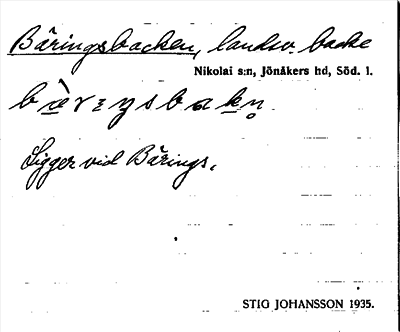 Bäringsbacken, landsv. backe
Nikolai s:n, Jönåkers hd, Söd. l.
Ligger vid Bärings.
STIG JOHANSSON 1935.